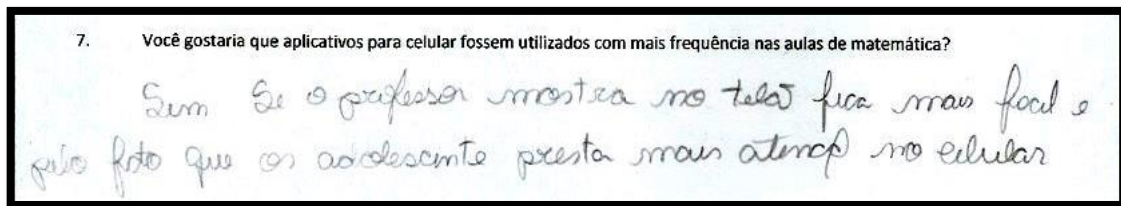 7. Você gostaria que aplicativos para celular fossem utilizados com mais frequência nas aulas de matemática?
Sim Se o professor mostra no telão fica mais facil e
pelo fato que os adolescente presta mais atenção no celular